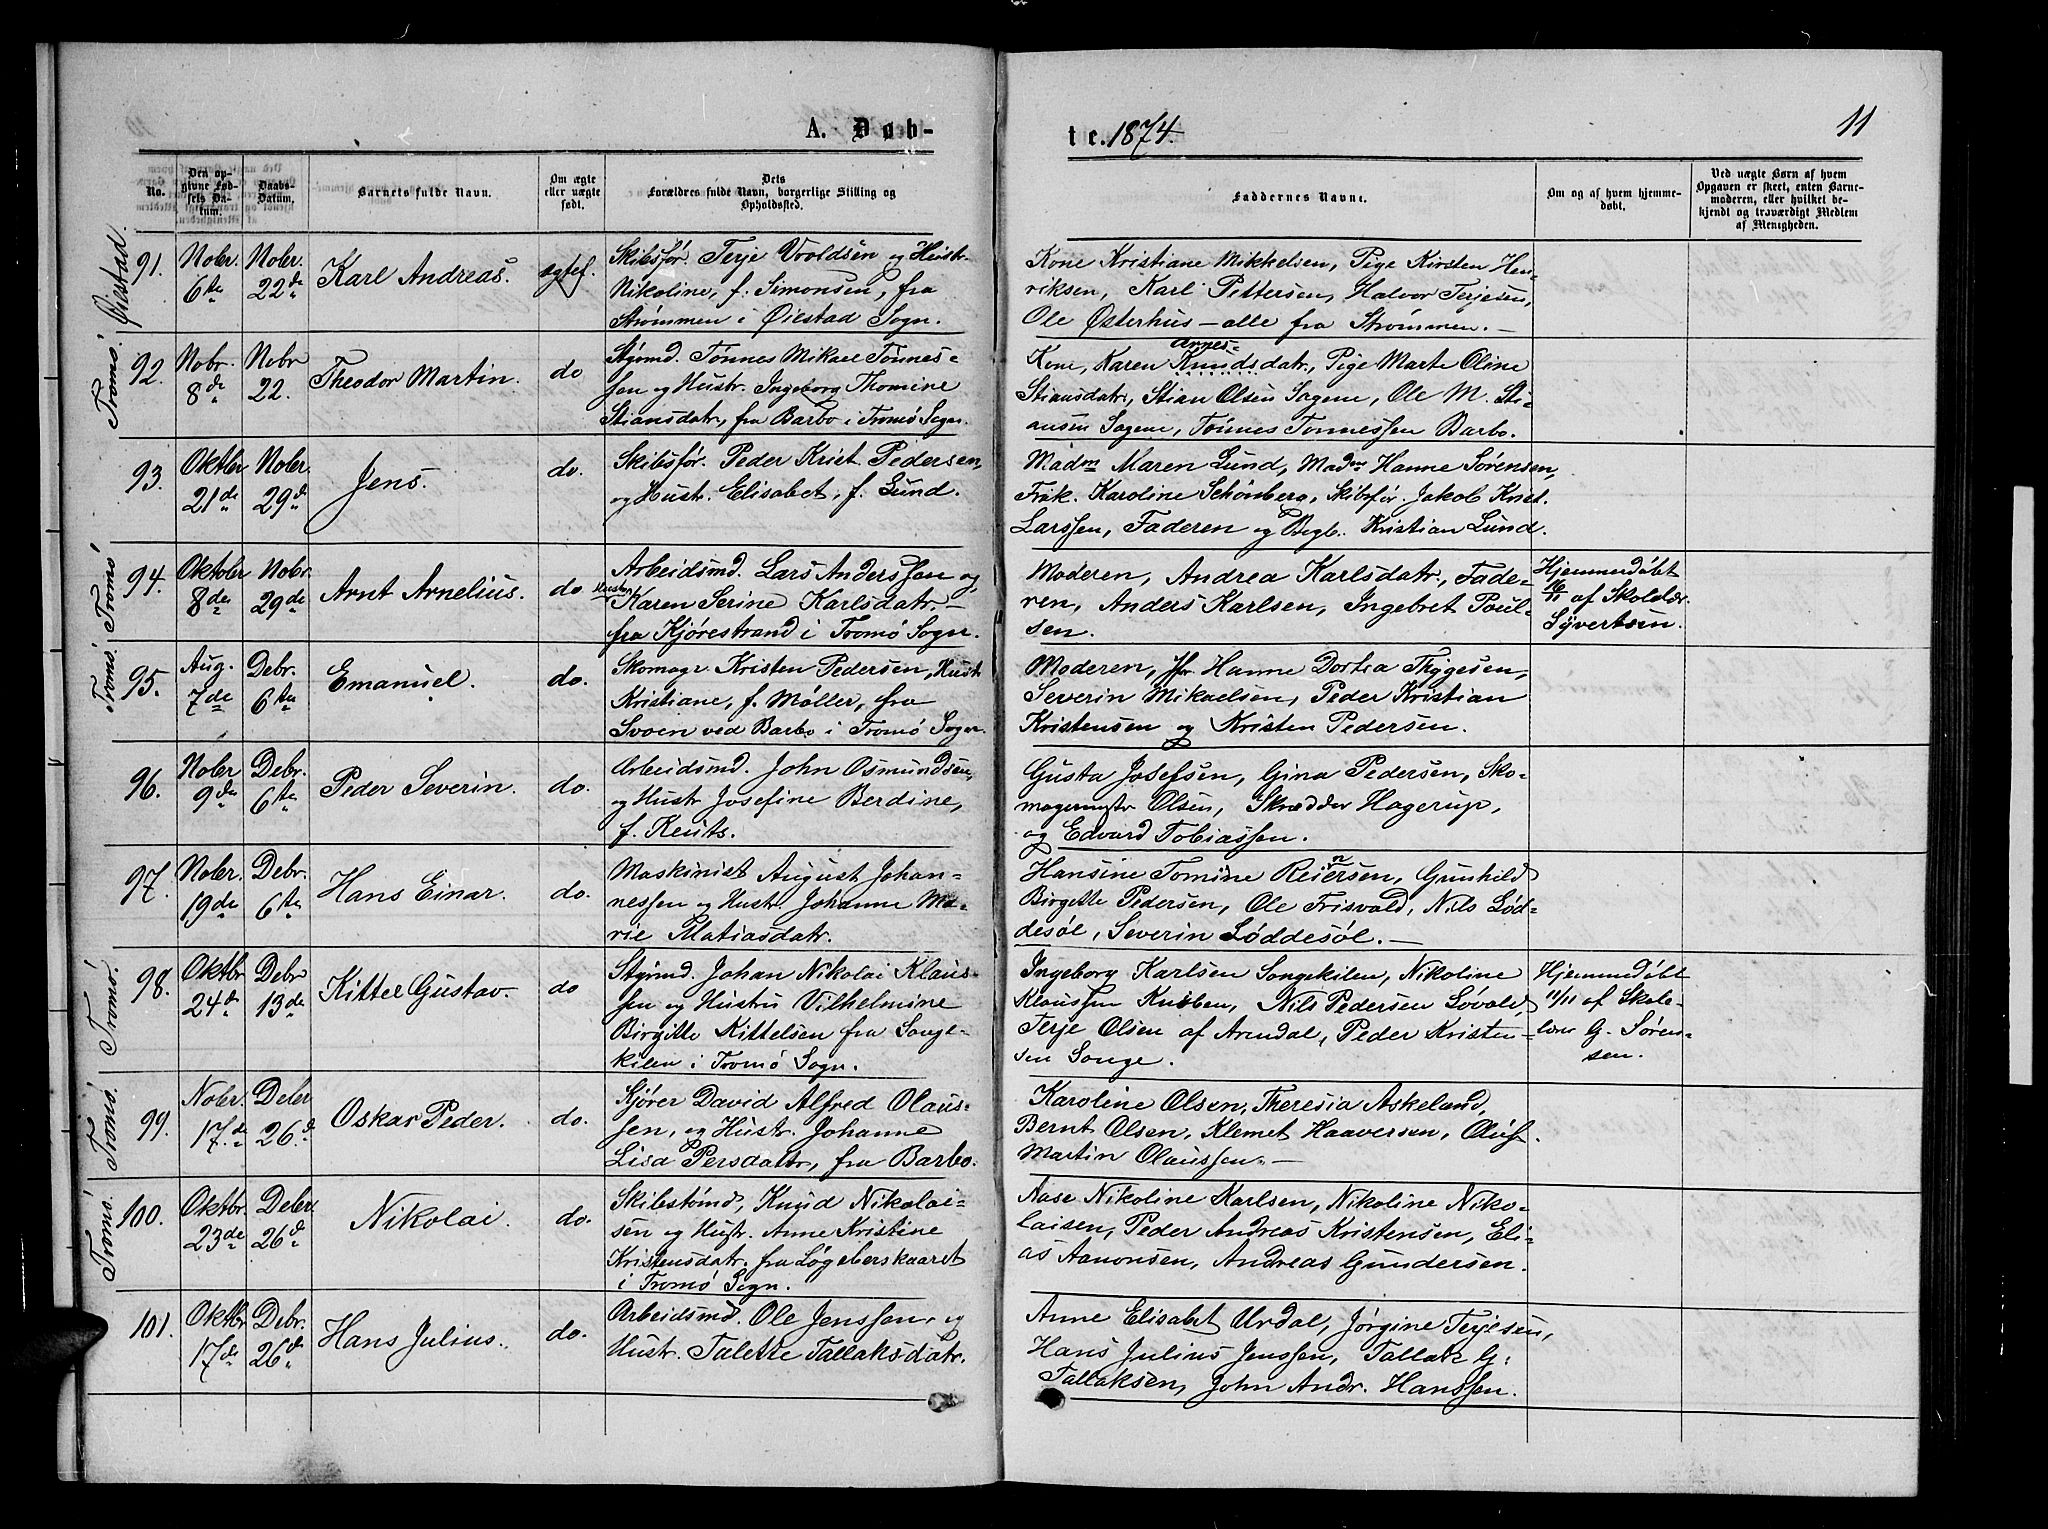 A. Døb-
te. 1874.
11
No.
Den op-
givne Fød-
sels Da-
tum.
Daabs-
Datum.
Barnets fulde Navn.
Om ægte
eller uægte
født.
Dets
Forældres fulde Navn, borgerlige Stilling og
Opholdssted.
Faddernes Navne.
Om og af hvem hjemme-
døbt.
Ved uægte Børn af hvem
Opgaven er skeet, enten Barne-
moderen, eller hvilket be-
kjendt og troværdigt Medlem
af Menigheden.
Øiestad.
91.
Nober.
6te
Nober.
22de
Karl Andreas.
ægtef.
Skibsfør. Terje Vroldsen og Hustr.
Nikoline, f. Simonsen, fra
Strømmen i Øiestad Sogn.
Kone Kristiane Mikkelsen, Pige Kirsten Hen-
riksen, Karl Pettersen, Halvor Terjesen,
Ole Østerhus - alle fra Strømmen. -
Tromö.
92.
Nobr.
8de
Nobr.
22.
Theodor Martin.
do
Styrmd. Tönnes Mikael Tönnes-
sen og Hustr. Ingeborg Thomine
Stiansdatr, fra Barbo i Tromö Sogn.
Arnes-
Kone, Karen Knudsdatr., Pige Marte Oline
Stiansdatr, Stian Olsen Sagene, Ole M. Sti-
ansen Sagene, Tönnes Tönnessen Barbo.
93.
Oktbr.
21de
Nober.
29d
Jens.
do.
Skibsfør. Peder Krist. Pedersen,
og Hustr. Elisabet, f. Lund.
Madm Maren Lund, Madm Hanne Sørensen,
Frøk. Karoline Schönberg, Skibsfør. Jakob Krist.
Larssen, Faderen og Begb. Kristian Lund.
Tromö
94.
Oktober
8de
Nobr.
29de
Arnt Arnelius.
do.
Arbeidsmd. Lars Anderssen og
Hustru
Karen Serine Karlsdatr. -
fra Kjørestrand i Tromö Sogn.
Moderen, Andrea Karlsdatr., Fade-
ren, Anders Karlsen, Ingebret Poul-
sen.
Hjemmedøbt
16/11 af Skolelær.
Syvertsen.
Tromö.
95.
Aug.
7de
Debr.
6te
Emanuel.
do.
Skomagr Kristen Pedersen, Hustr
Kristiane, f. Møller, fra
Svoien ved Barbo i Tromö Sogn.
Moderen, Jfr. Hanne Dortea Thygesen,
Severin Mikaelsen, Peder Kristian
Kristensen og Kristen Pedersen.
96.
Nober
9de
Debr.
6te
Peder Severin.
do.
Arbeidsmd. John Osmundsen,
og Hustr Josefine Berdine,
f. Reuts.
Gusta Josefsen, Gina Pedersen, Sko-
magermstr Olsen, Skrædder Hagerup,
og Edvard Tobiassen.
97.
Nober.
19de
Debr.
6te
Hans Einar.
do.
Maskinist August Johan-
nessen og Hustr. Johanne Ma-
rie Matiasdatr.
Hansine Tomine Reiersen, Gunhild
Birgitte Pedersen, Ole Frisvold, Nils Lød-
desøl, Severin Løddesøl. -
Tromö.
98.
Oktbr
24de
Debr
13de
Kittel Gustav.
do
Styrmd. Johan Nikolai Klaus-
sen og Hustru Vilhelmine
Birgitte Kittelsen fra Songe-
kilen i Tromö Sogn.
Ingeborg Karlsen Songekilen, Nikoline
Klaussen Knibben, Nils Pedersen Løvold,
Terje Olsen af Arendal, Peder Kristen-
sen Songe.
Hjemmedøbt
11/11 af Skole-
lærer G. Søren-
sen.
Tromö.
99.
Nober.
17.de
Deber
26.d
Oskar Peder.
do.
Kjører David Alfred Olaus-
sen, og Hustr. Johanne
Lisa Persdattr, fra Barbo.
Karoline Olsen, Theresia Askeland,
Bernt Olsen, Klemet Haaversen, Oluf
Martin Olaussen. -
Tromö.
100.
Oktbr.
23de
Deber.
26d
Nikolai.
do.
Skibstömd, Knud Nikolai-
sen og Hustr. Anne Kristine
Kristensdatr. fra Løgeberskaaret
i Tromö Sogn.
Aase Nikoline Karlsen, Nikoline Niko-
laisen, Peder Andreas Kristensen, Eli-
as Aanonsen, Andreas Gundersen.
101.
Oktbr
17de
Debr.
26de
Hans Julius.
do.
Arbeidsmd. Ole Jenssen, og
Hustr. Talette Tallaksdatr.
Anne Elisabet Urdal, Jørgine Terjesen,
Hans Julius Jenssen, Tallak G.
Tallaksen, John Andr. Hanssen.